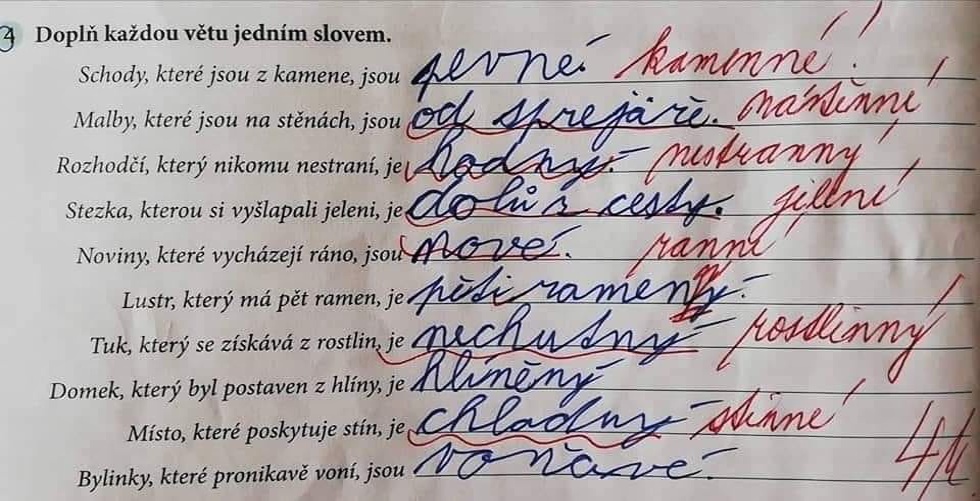 4 Doplň každou větu jedním slovem.
Schody, které jsou z kamene, jsou pevné. kamenné!
Malby, které jsou na stěnách, jsou od sprejáře. nástěnné
Rozhodčí, který nikomu nestraní, je hodný. nestranný
Stezka, kterou si vyšlapali jeleni, je dolů z cesty. jelení
Noviny, které vycházejí ráno, jsou nové. ranní
Lustr, který má pět ramen, je pětiramenný.
Tuk, který se získává z rostlin, je nechutný rostlinný
Domek, který byl postaven z hlíny, je hlíněný
Místo, které poskytuje stín, je chladný stinné
Bylinky, které pronikavě voní, jsou voňavé.